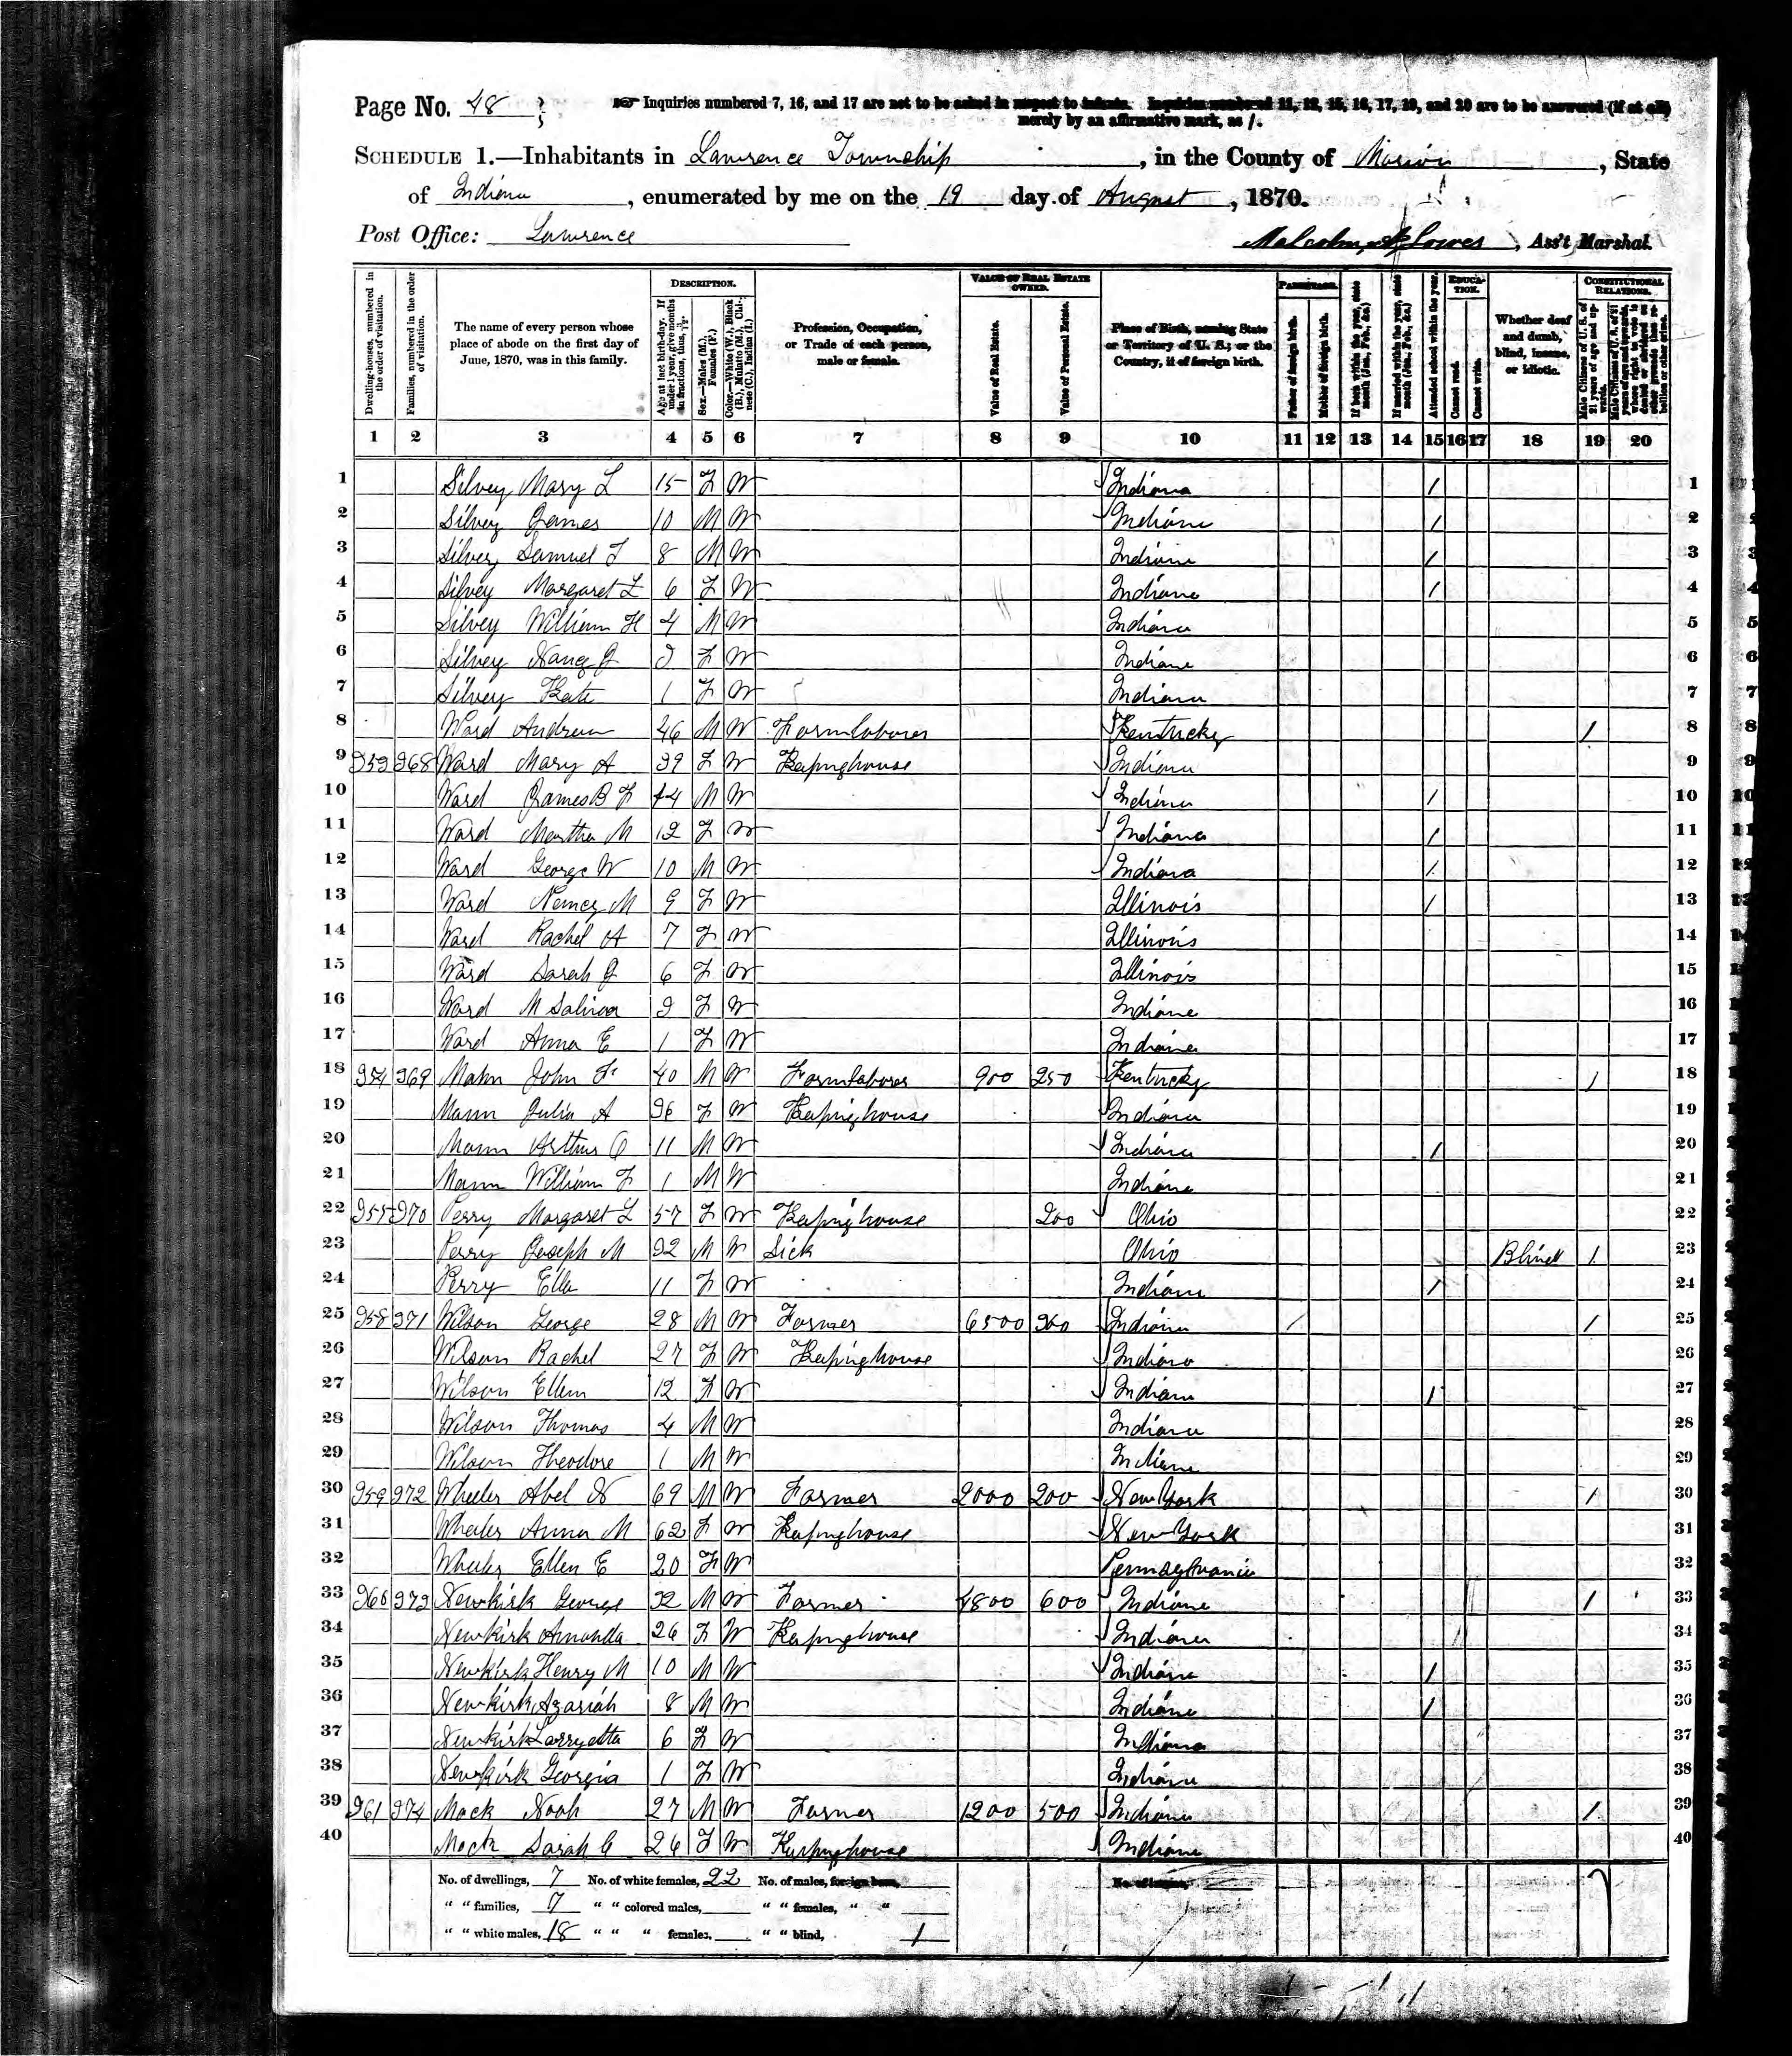 Page No. 48
Inquiries numbered 7, 16, and 17 are not to be asked in respect to infants. Inquiries numbered 11, 12, 15, 16, 17, 19, and 20 are to be answered (if at all)
merely by an affirmative mark, as /.
SCHEDULE 1.—Inhabitants in Lawrence Township, in the County of Marion, State
of Indiana, enumerated by me on the 19 day of August, 1870.
Post Office: Lawrence
Malcolm, Ass't Marshal.
DESCRIPTION. VALUE OF REAL ESTATE OWNED. PARENTAGE. EDUCATION. CONSTITUTIONAL RELATIONS.
Dwelling-houses, numbered in the order of visitation.
Families, numbered in the order of visitation.
The name of every person whose place of abode on the first day of June, 1870, was in this family.
Age at last birth-day. If under 1 year, give months in fractions, thus, 3/12.
Sex.—Males (M.), Females (F.)
Color.—White (W.), Black (B.), Mulatto (M.), Chinese (C.), Indian (I.)
Profession, Occupation, or Trade of each person, male or female.
Value of Real Estate.
Value of Personal Estate.
Place of Birth, naming State or Territory of U. S.; or the Country, if of foreign birth.
Father of foreign birth.
Mother of foreign birth.
If born within the year, state month (Jan., Feb., &c.)
If married within the year, state month (Jan., Feb., &c.)
Attended school within the year.
Cannot read.
Cannot write.
Whether deaf and dumb, blind, insane, or idiotic.
Male Citizens of U. S. of 21 years of age and upwards.
1 2 3 4 5 6 7 8 9 10 11 12 13 14 15 16 17 18 19 20
1 Silvey Mary L 15 F W Indiana / 1
2 Silvey James 10 M W Indiana / 2
3 Silvey Samuel T 8 M W Indiana / 3
4 Silvey Margaret L 6 F W Indiana / 4
5 Silvey William H 4 M W Indiana 5
6 Silvey Nancy J 3 F W Indiana 6
7 Silvey Kate 1 F W Indiana 7
8 Ward Andrew 46 M W Farmlaborer Kentucky / 8
9 953 968 Ward Mary A 39 F W Keepinghouse Indiana 9
10 Ward James B F 14 M W Indiana / 10
11 Ward Martha M 12 F W Indiana / 11
12 Ward George W 10 M W Indiana / 12
13 Ward Nancy M 9 F W Illinois / 13
14 Ward Rachel A 7 F W Illinois 14
15 Ward Sarah J 6 F W Illinois 15
16 Ward M 3 F W Indiana 16
17 Ward Anna E 1 F W Indiana 17
18 954 969 Mann John F 40 M W Farmlaborer 900 250 Kentucky / 18
19 Mann Julia A 36 F W Keepinghouse Indiana 19
20 Mann Arthur O 11 M W Indiana / 20
21 Mann William F 1 M W Indiana 21
22 955 970 Perry Margaret L 57 F W Keepinghouse 200 Ohio 22
23 Perry Joseph M 32 M W Sick Ohio Blind / 23
24 Perry Ella 11 F W Indiana / 24
25 958 971 Wilson George 28 M W Farmer 6500 360 Indiana / / 25
26 Wilson Rachel 27 F W Keepinghouse Indiana 26
27 Wilson Ellen 12 F W Indiana / 27
28 Wilson Thomas 4 M W Indiana 28
29 Wilson Theodore 1 M W Indiana 29
30 959 972 Wheeler Abel N 69 M W Farmer 2000 200 New York / 30
31 Wheeler Anna M 62 F W Keepinghouse New York 31
32 Wheeler Ellen E 20 F W Pennsylvania 32
33 960 973 Newkirk George 32 M W Farmer 4800 600 Indiana / 33
34 Newkirk Amanda 26 F W Keepinghouse Indiana 34
35 Newkirk Henry M 10 M W Indiana / 35
36 Newkirk Azariah 8 M W Indiana / 36
37 Newkirk Larryetta 6 F W Indiana 37
38 Newkirk Georgia 1 F W Indiana 38
39 961 974 Mock Noah 27 M W Farmer 1200 500 Indiana / 39
40 Mock Sarah C 26 F W Keepinghouse Indiana 40
No. of dwellings, 7 No. of white females, 22 No. of males, foreign born, 7
" " families, 7 " " colored males, " " females, " "
" " white males, 18 " " " females, " " blind, 1